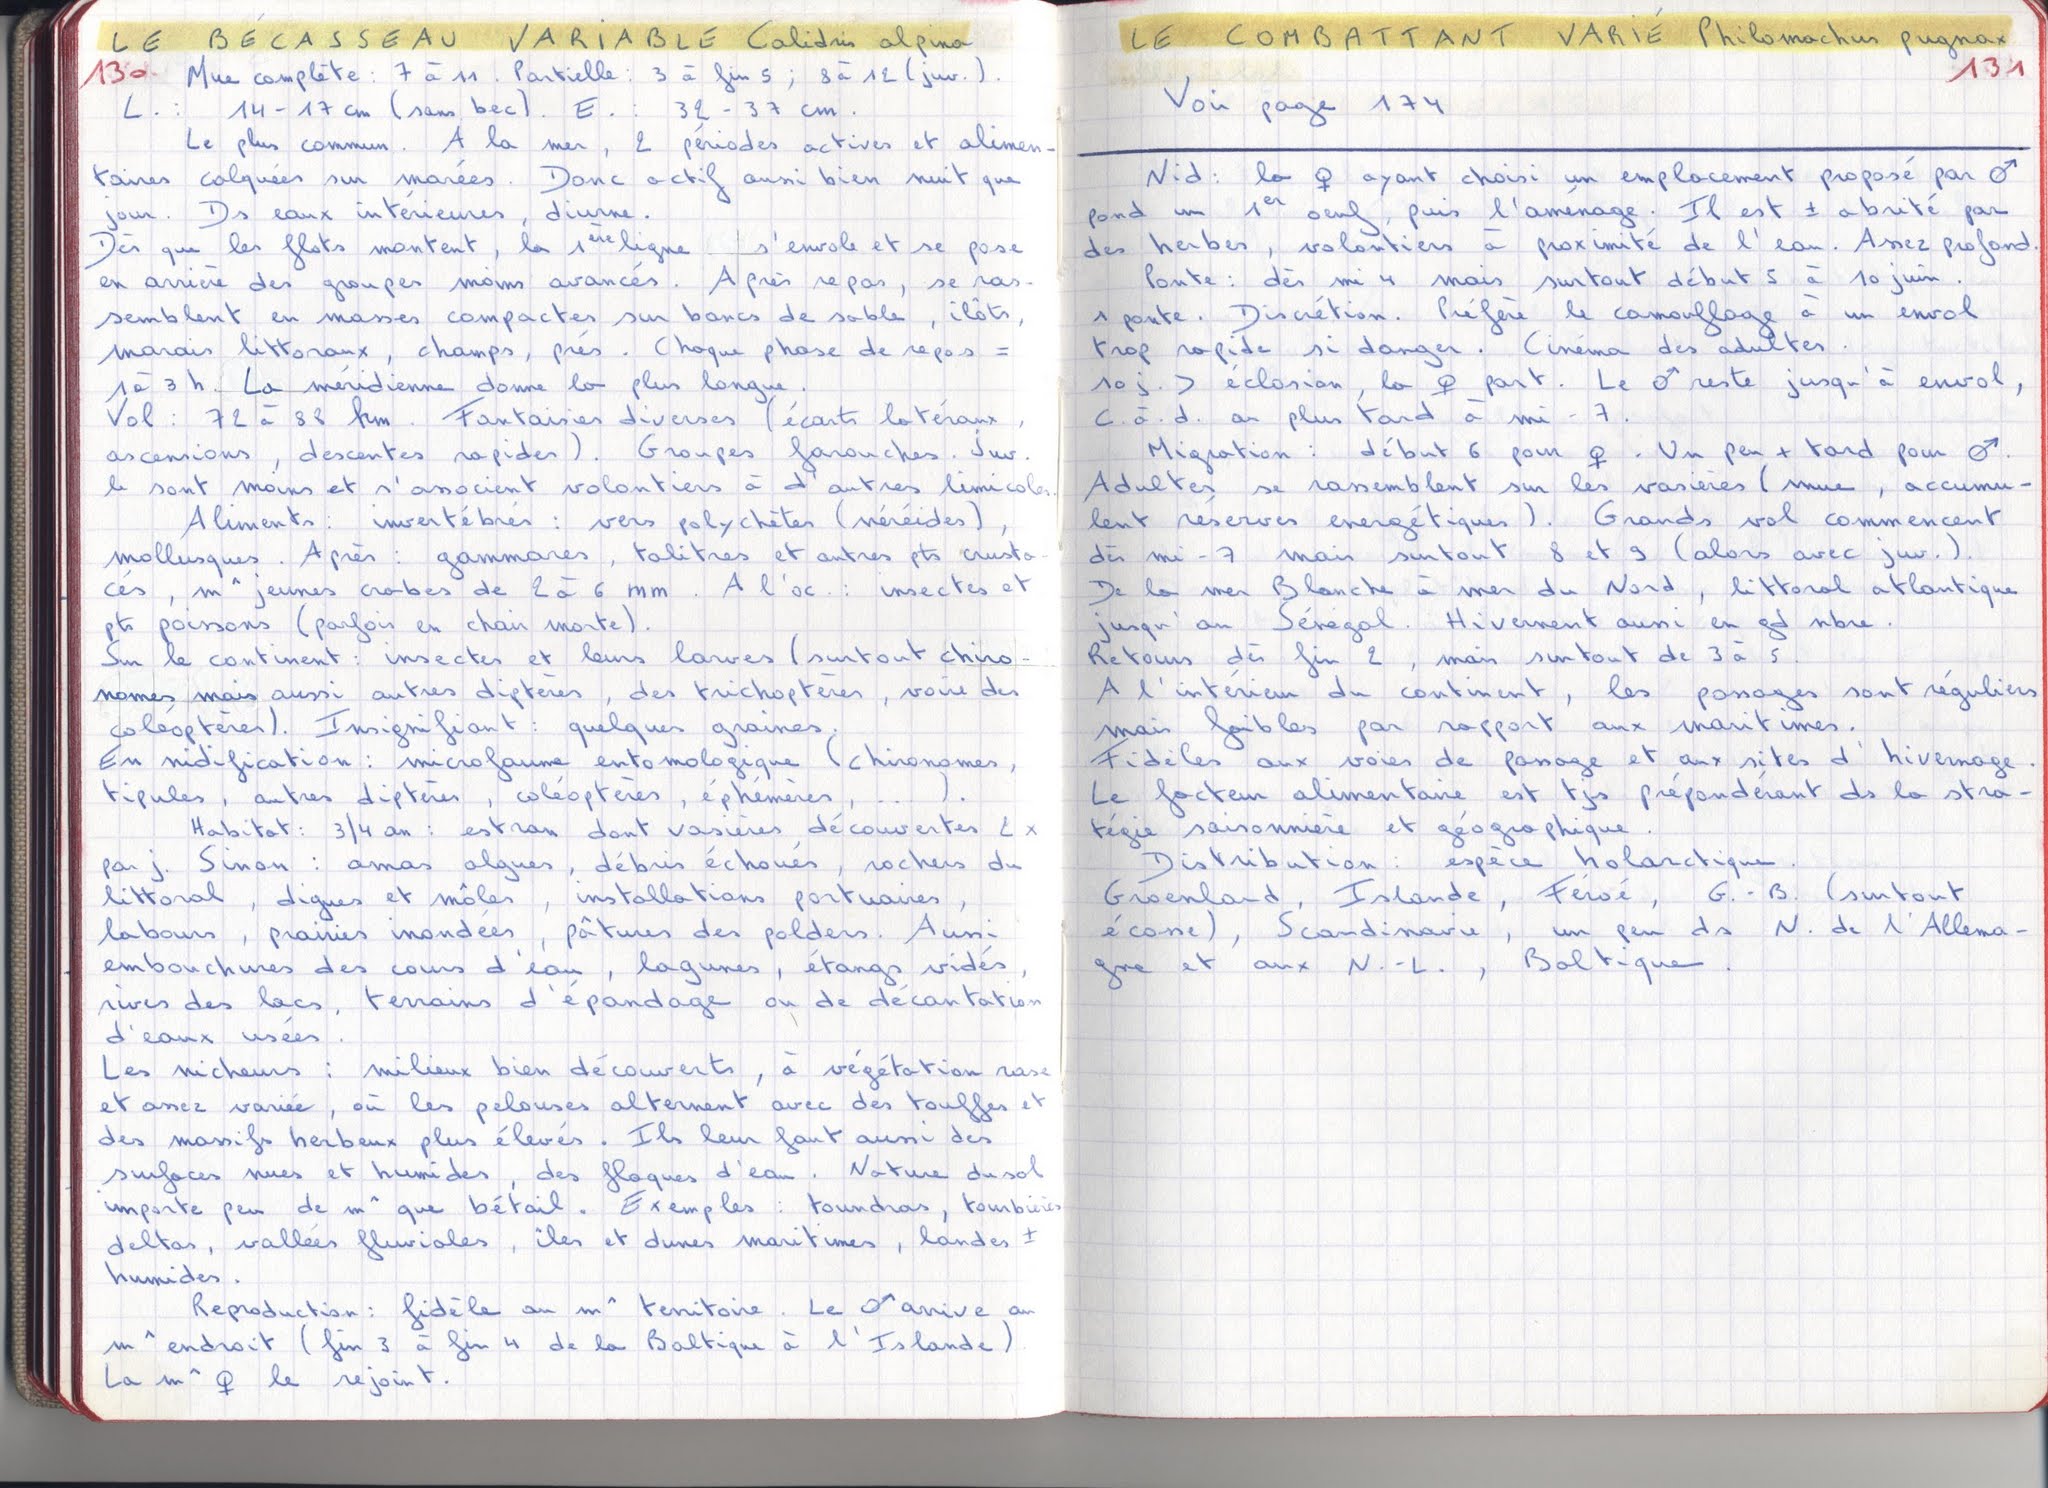 LE BÉCASSEAU VARIABLE Calidris alpina
130 Mue complète : 7 à 11. Partielle : 3 à fin 5 ; 8 à 12 (juv.).
L. : 14-17 cm (sans bec). E. : 32-37 cm.
Le plus commun. A la mer, 2 périodes actives et alimen-
taires calquées sur marées. Donc actif aussi bien nuit que
jour. Ds eaux intérieures, diurne.
Dès que les flots montent, la 1ère ligne s'envole et se pose
en arrière des groupes moins avancés. Après repas, se ras-
semblent en masses compactes sur bancs de sable, ilôts,
marais littoraux, champs, prés. Chaque phase de repos =
1 à 3 h. La méridienne donne la plus longue.
Vol : 72 à 88 km. Fantaisies diverses (écarts latéraux,
ascensions, descentes rapides). Groupes farouches. Juv.
le sont moins et s'associent volontiers à d'autres limicoles.
Aliments : invertébrés : vers polychètes (néréides),
mollusques. Après : gammares, talitres et autres pts crusta-
cés, m^ jeunes crabes de 2 à 6 mm. A l'oc. : insectes et
pts poissons (parfois en chair morte).
Sur le continent : insectes et leurs larves (surtout chiro-
nomes mais aussi autres diptères, des trichoptères, voire des
coléoptères). Insignifiant : quelques graines.
En nidification : microfaune entomologique (chironomes,
tipules, autres diptères, coléoptères, éphémères, ...).
Habitat : 3/4 an : estran dont vasières découvertes 2 x
par j. Sinon : amas algues, débris échoués, rochers du
littoral, digues et môles, installations portuaires,
labours, prairies inondées, pâtures des polders. Aussi
embouchures des cours d'eau, lagunes, étangs vidés,
rives des lacs, terrains d'épandage ou de décantation
d'eaux usées.
Les nicheurs : milieux bien découverts, à végétation rase
et assez variée, où les pelouses alternent avec des touffes et
des massifs herbeux plus élevés. Ils leur faut aussi des
surfaces nues et humides, des flaques d'eau. Nature du sol
importe peu de m^ que bétail. Exemples : toundras, tourbières
deltas, vallées fluviales, îles et dunes maritimes, landes ±
humides.
Reproduction : fidèle au m^ territoire. Le ♂ arrive au
m^ endroit (fin 3 à fin 4 de la Baltique à l'Islande)
La m^ ♀ le rejoint.
LE COMBATTANT VARIÉ Philomachus pugnax
131
Voir page 174
Nid : la ♀ ayant choisi un emplacement proposé par ♂
pond un 1er oeuf, puis l'aménage. Il est ± abrité par
des herbes, volontiers à proximité de l'eau. Assez profond.
Ponte : dès mi 4 mais surtout début 5 à 10 juin.
1 ponte. Discrétion. Préfère le camouflage à un envol
trop rapide si danger. Cinéma des adultes.
10 j. > éclosion, la ♀ part. Le ♂ reste jusqu'à envol,
c.à.d. au plus tard à mi-7.
Migration : début 6 pour ♀. Un peu + tard pour ♂.
Adultes se rassemblent sur les vasières (mue, accumu-
lent réserves energétiques). Grands vol commencent
dès mi-7 mais surtout 8 et 9 (alors avec juv.).
De la mer Blanche à mer du Nord, littoral atlantique
jusqu'au Sénégal. Hivernent aussi en gd nbre.
Retours dès fin 2, mais surtout de 3 à 5.
A l'intérieur du continent, les passages sont réguliers
mais faibles par rapport aux maritimes.
Fidèles aux voies de passage et aux sites d'hivernage.
Le facteur alimentaire est tjs prépondérant ds la stra-
tégie saisonnière et géographique.
Distribution : espèce holarctique.
Groenland, Islande, Féroé, G.-B. (surtout
écosse), Scandinavie, un peu ds N. de l'Allema-
gne et aux N.-L., Baltique.